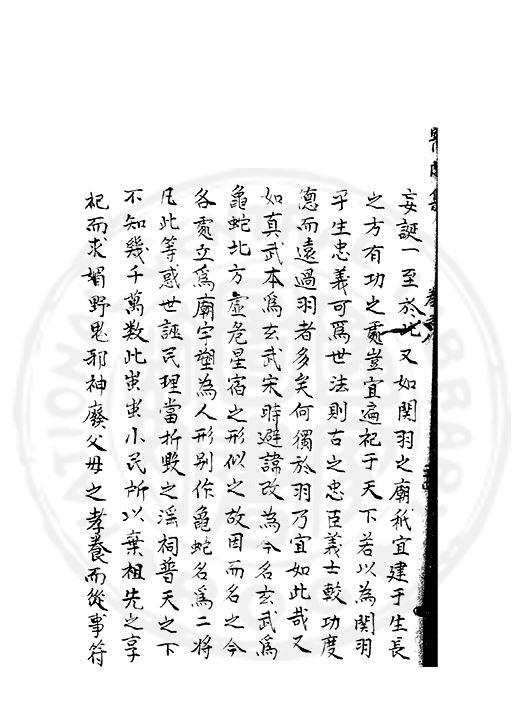 妄誕一至於此又如関羽之廟秪宜建于生長
之方有功之處豈宜遍祀于天下若以為関羽
平生忠義可爲世法則古之忠臣義士較功度
德而遠過羽者多矣何獨於羽乃宜如此哉又
如真武本爲玄武宋時避諱改為今名玄武爲
龜蛇北方虛危星宿之形似之故因而名之今
各處立爲廟宇塑為人形别作龜蛇名爲二將
凡此等惑世誣民理當折毁之滛祠普天之下
不知幾千萬數此蚩蚩小民所以棄祖先之享
祀而求媚野鬼邪神廢父母之孝養而從事符